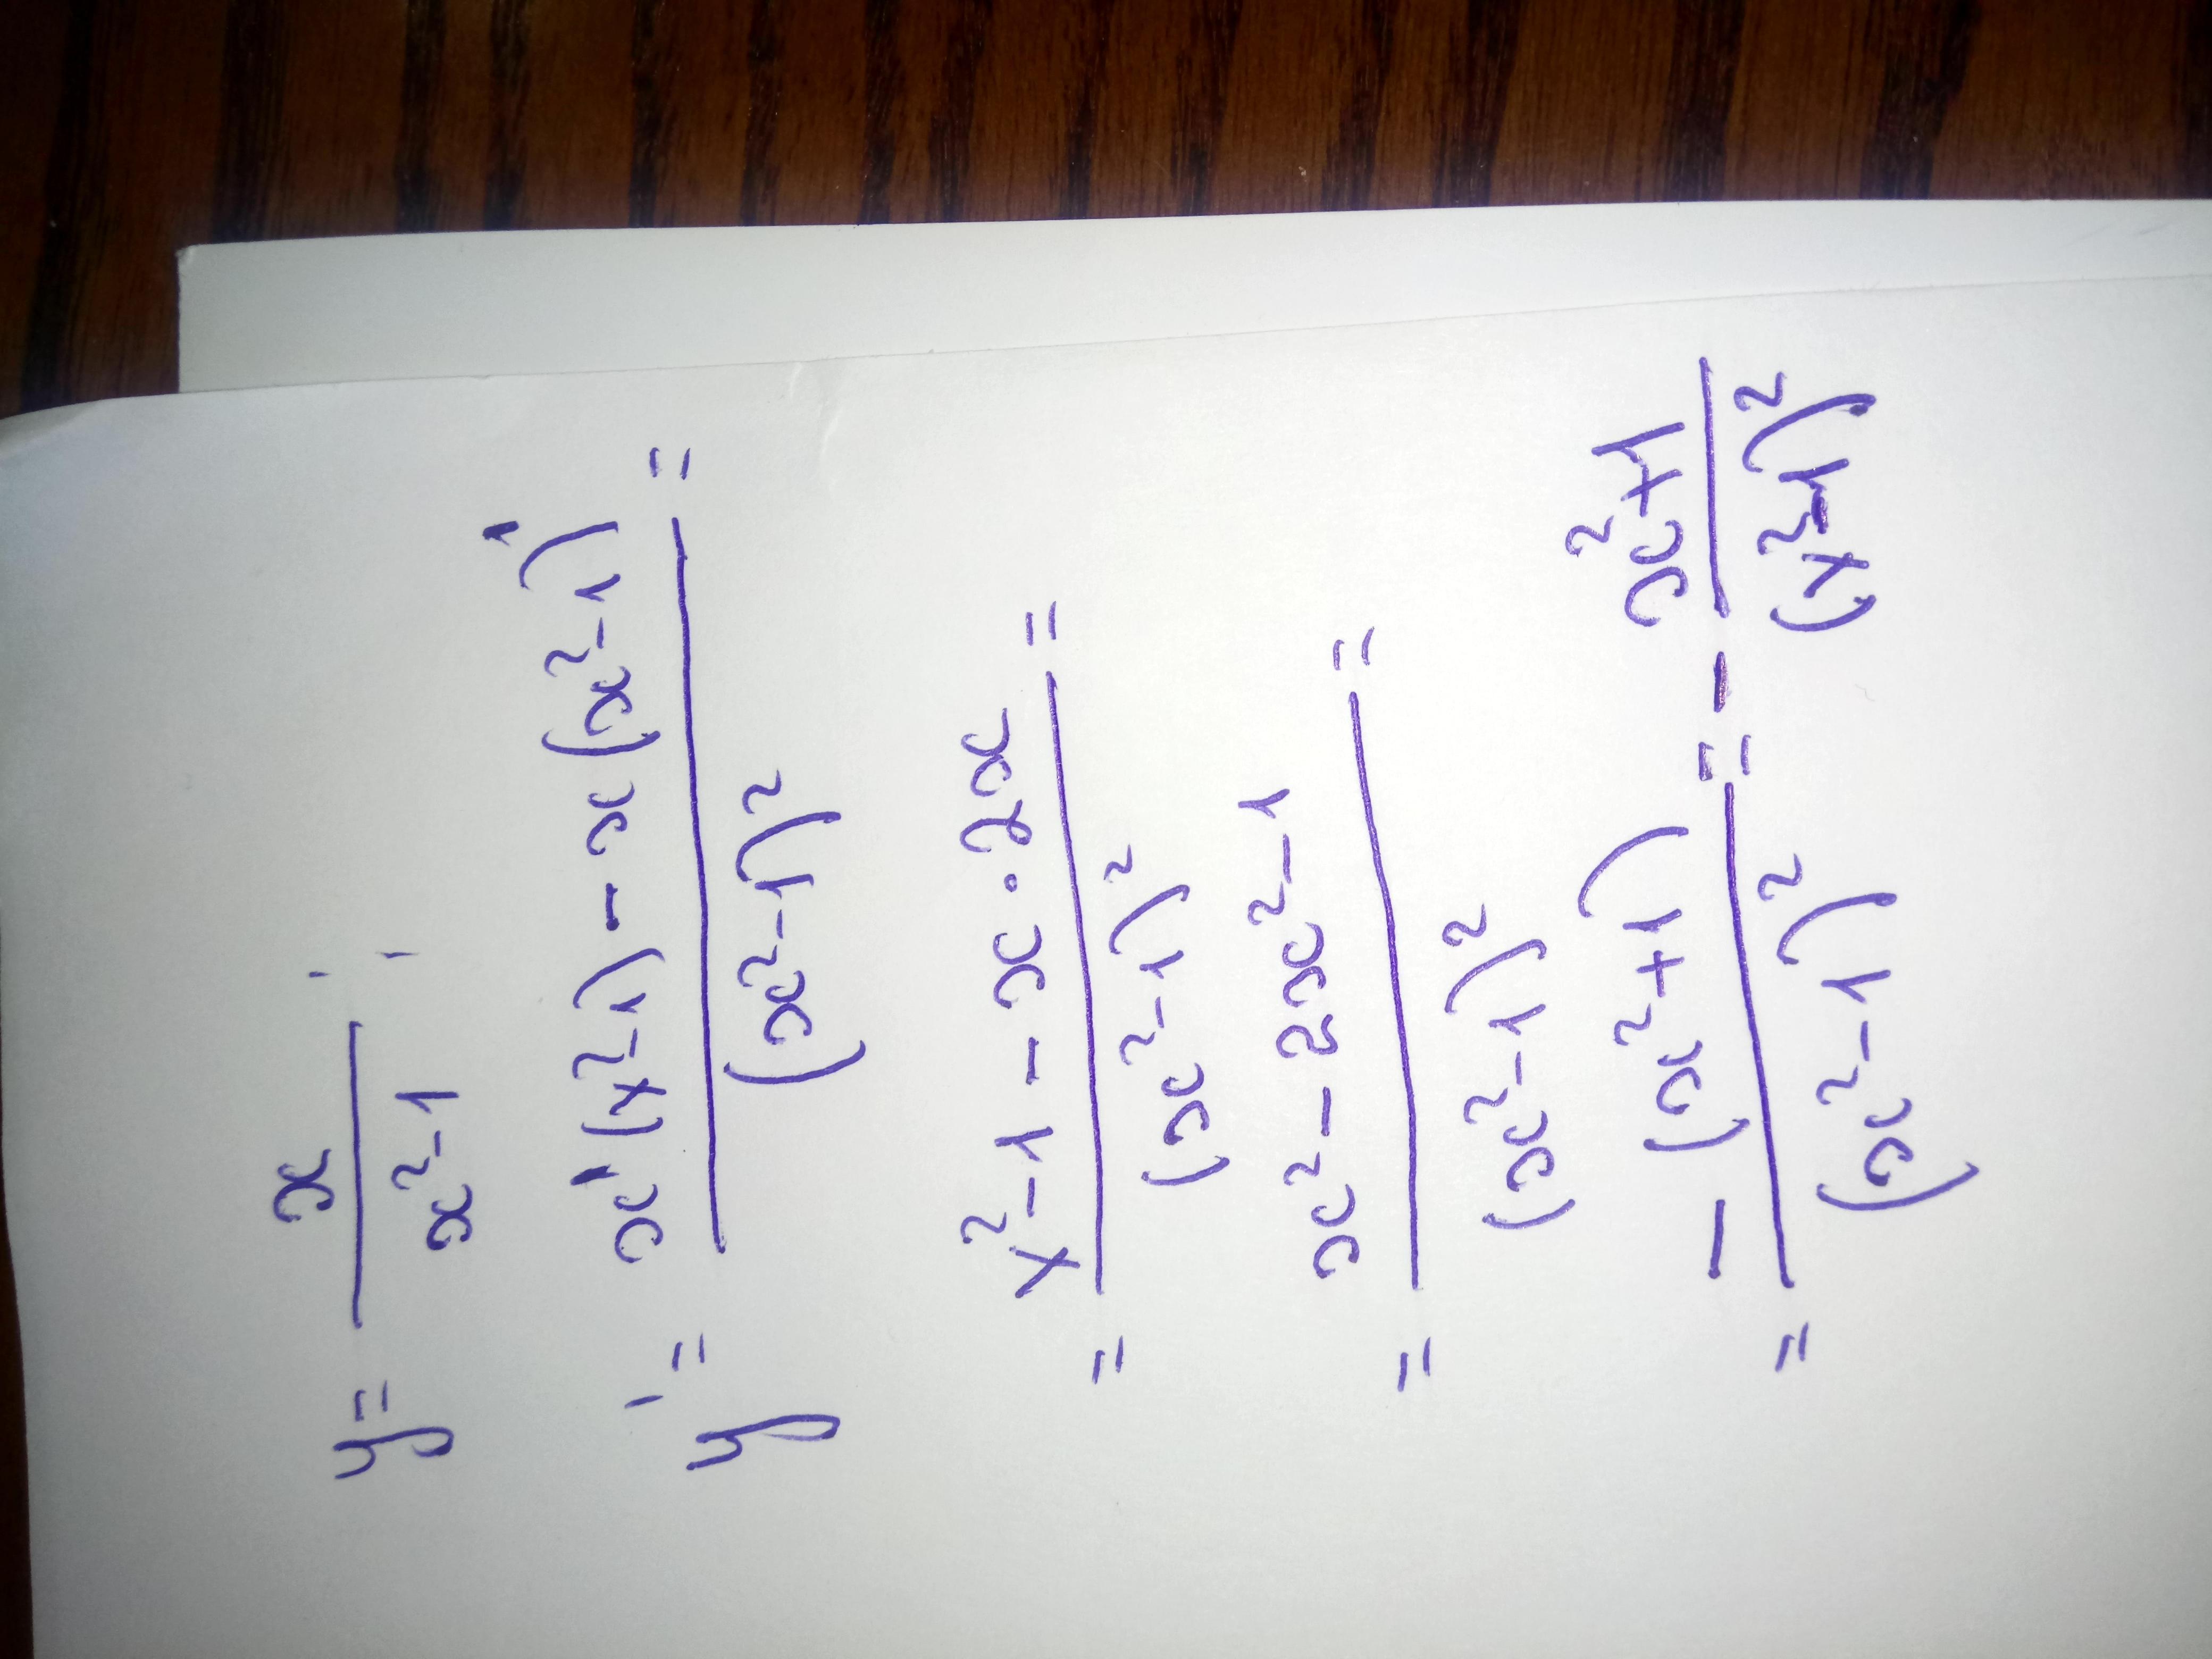 y = x / (x² - 1)
y' = (x'(x² - 1) - x(x² - 1)') / (x² - 1)² =
= (x² - 1 - x · 2x) / (x² - 1)² =
= (x² - 2x² - 1) / (x² - 1)² =
= -(x² + 1) / (x² - 1)² = - (x² + 1) / (x² - 1)²